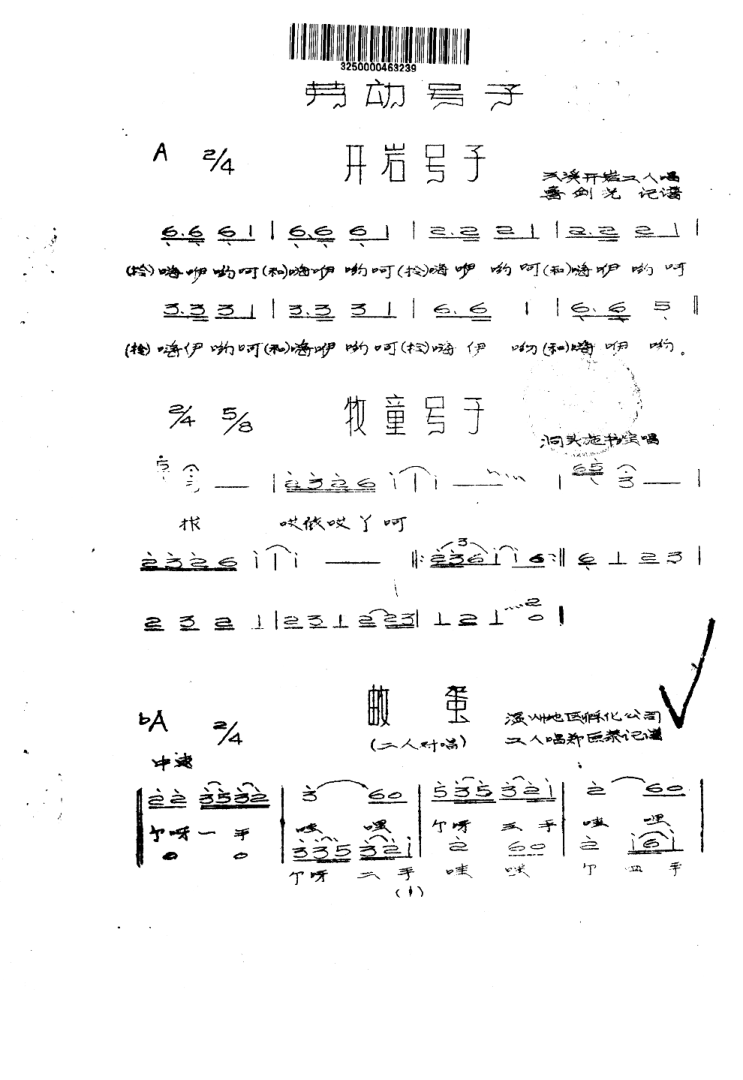 3250000463239
劳动号子
A 2/4 开岩号子
开岩工人唱
记谱
6.6 6 1 | 6.6 6 1 | 2.2 2 1 | 2.2 2 1 |
(领)嗨咿哟呵(和)嗨咿哟呵(领)嗨咿哟呵(和)嗨咿哟呵
3.3 3 1 | 3.3 3 1 | 6. 6 1 | 6. 6 5 ‖
(领)嗨伊哟呵(和)嗨咿哟呵(领)嗨伊哟(和)嗨咿哟。
2/4 5/8 牧童号子
洞头 唱
3 — | 2 3 2 6 i i — | 65 3 — |
哎依哎丫呵
2 3 2 6 i i — ‖: 2 3 6 i i 6 :‖ 6 1 2 3 |
2 3 2 1 | 2 3 1 2 2 3 | 1 2 1 2 0
bA 2/4 蛋
(二人对唱)
温州地区孵化公司
工人唱郑 记谱
中速
2 2 3 5 3 2 | 3 6 0 | 5 3 5 3 2 i | 2 6 0
尔呀一手 哇嘿 尔呀三手 哇嘿
0 0 | 3 3 5 3 2 i | 2 6 0 | 2 i 6 i
尔呀二手 哇 尔四手
(1)